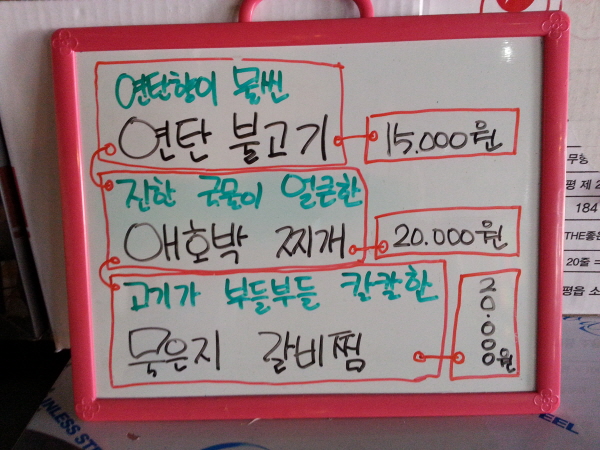 연탄향이 물씬
연탄 불고기
15.000원
진한 국물이 얼큰한
애호박 찌개
20.000원
고기가 부들부들 칼칼한
묵은지 갈비찜
20.000원
무항
평 제 2
184
THE좋은
20줄 =
평읍 소